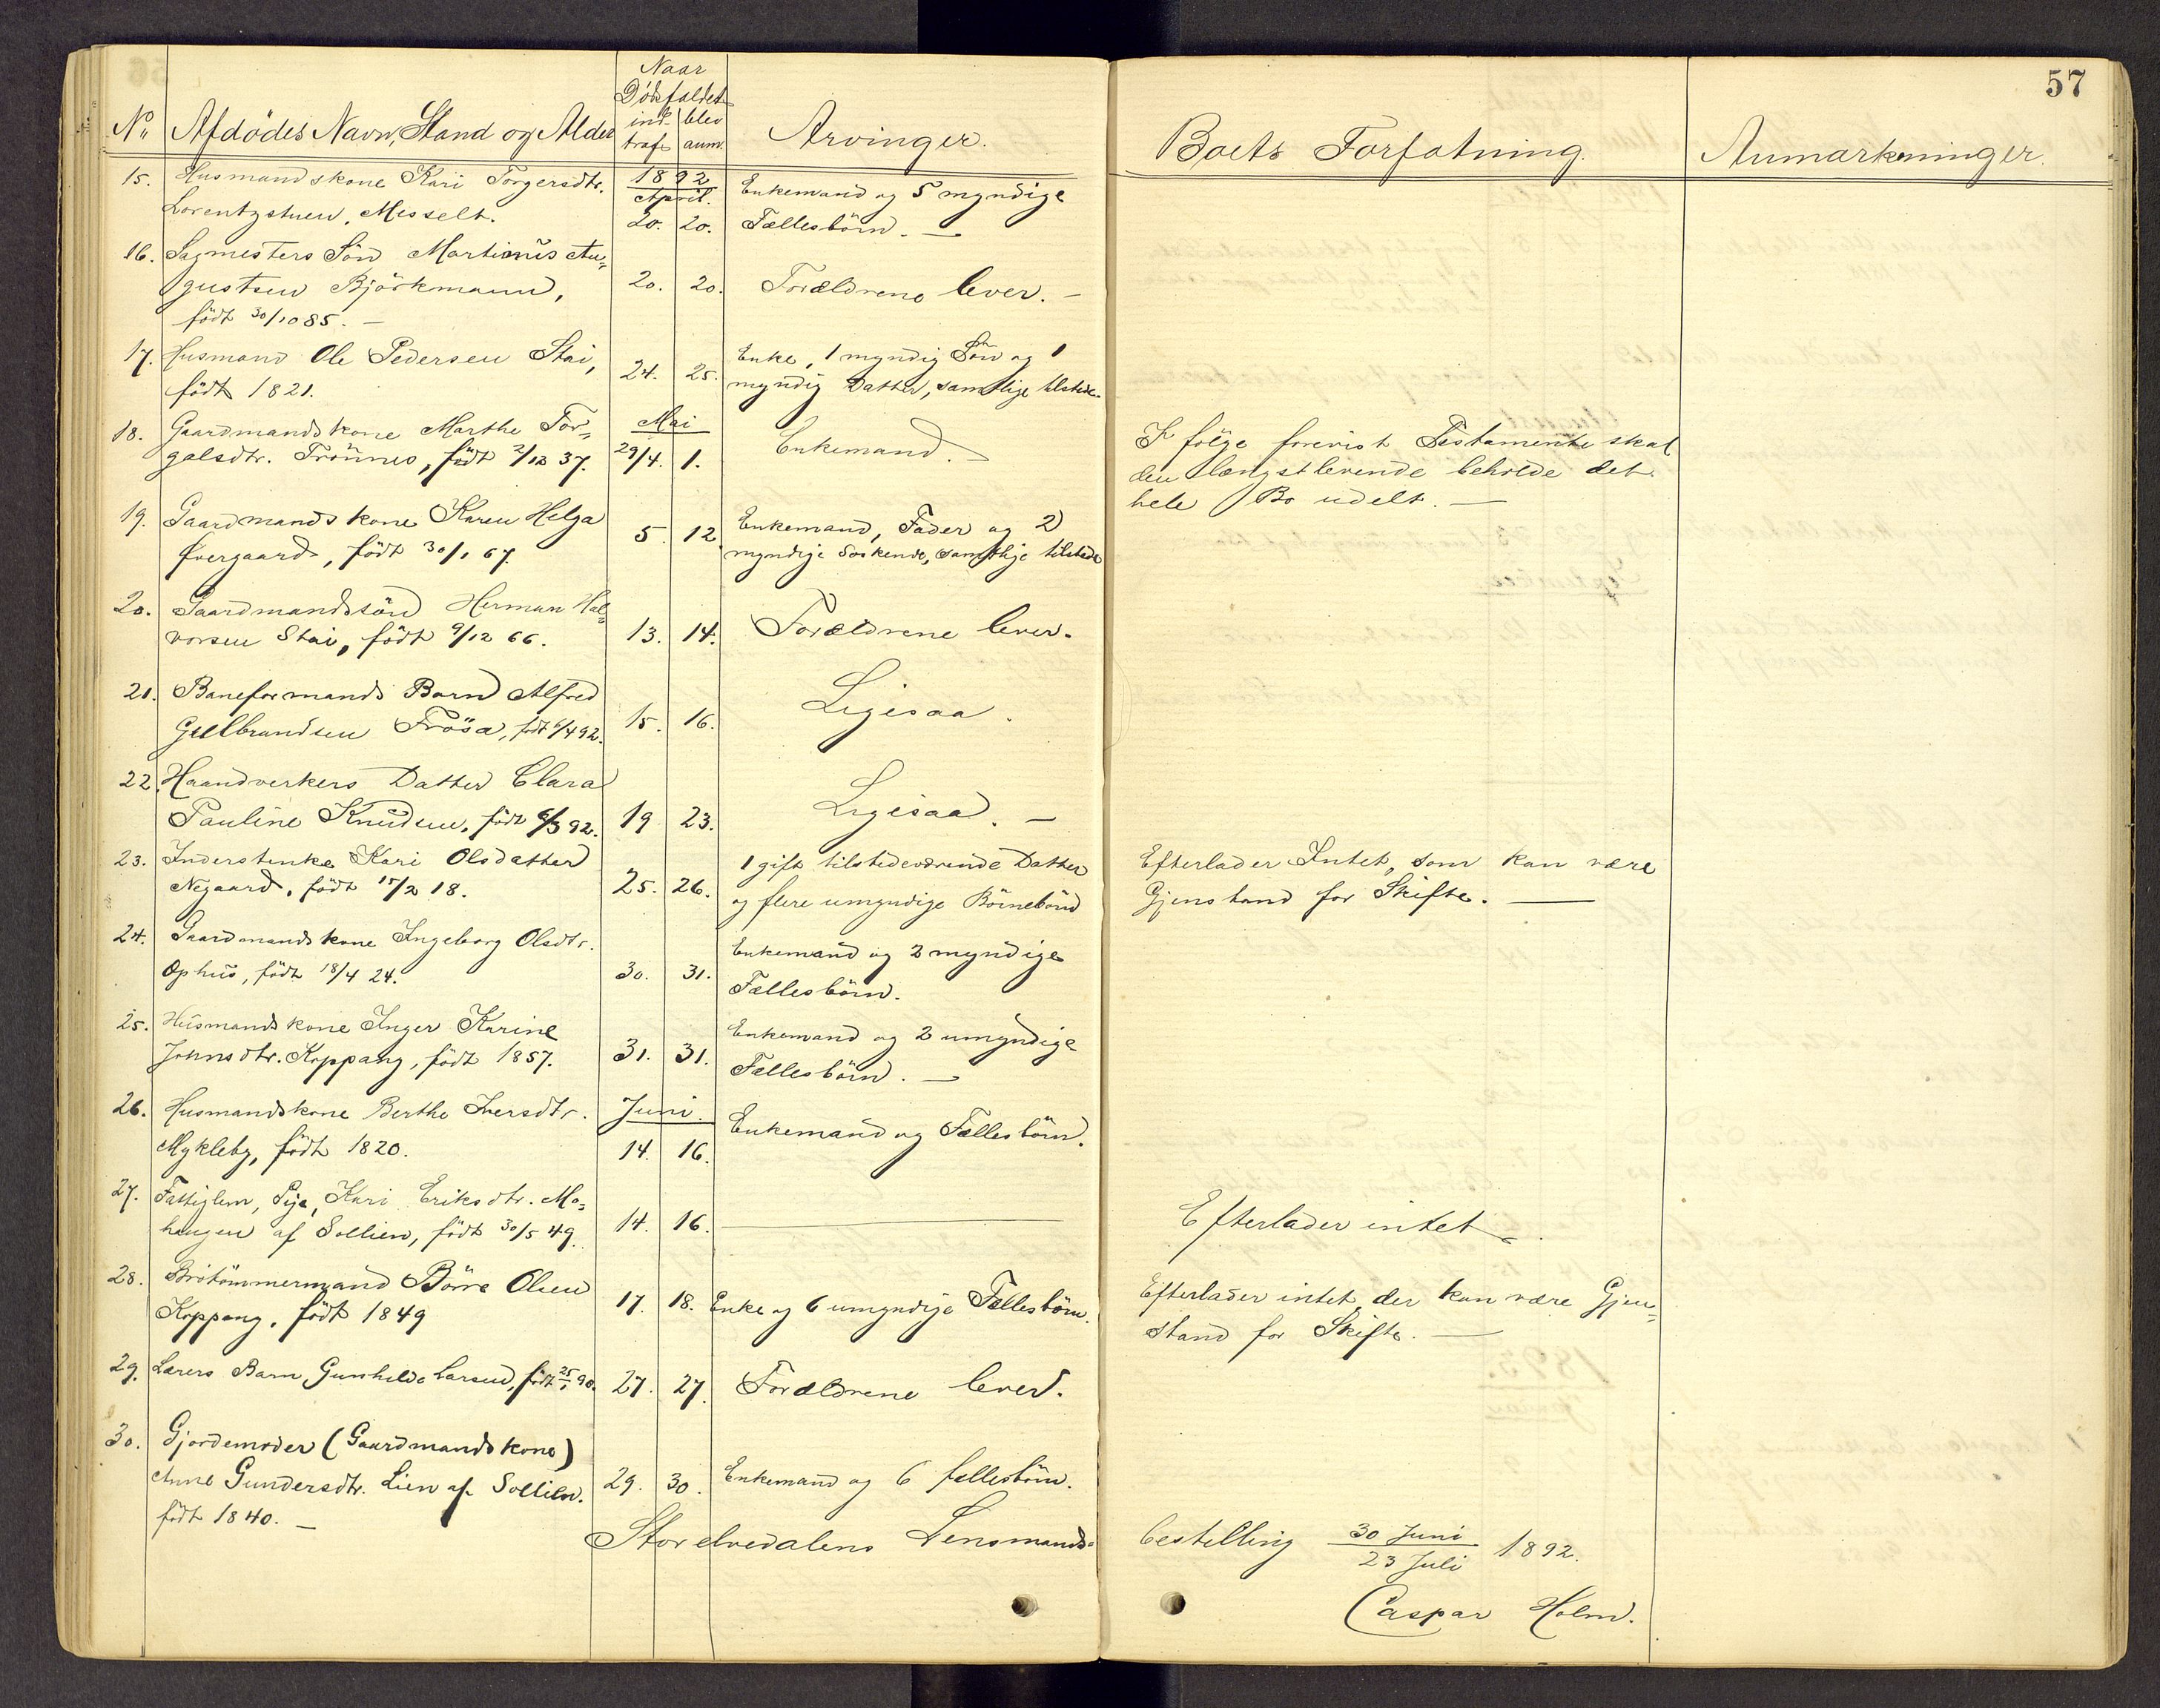 57
Naar
Dödsfaldet
No Afdödes Navn, Stand og Alder indtraf blev anm. Arvinger. Boets Forfatning. Anmærkninger.
15. Husmandskone Kari Torgersdtr. 1892 Enkemand og 5 myndige
Lorentzstuen, Messelt. April. 20. 20. Fællesbörn. —
16. Sagmesters Sön Martinus Au=
gustsen Björkmann, 20. 20. Forældrene lever. —
född 30/10 85. —
17. Husmand Ole Pedersen Stai, Enke, 1 myndig Sön og 1
född 1821. 24. 25. myndig Datter, samtlige tilstede.
18. Gaardmandskone Marthe Tor= Mai Enkemand. I fölge forevist Testamente skal
galsdtr. Trönnes, födt 2/12 37. 29/4. 1. den længstlevende beholde det
hele Bo udelt. —
19. Gaardmandskone Karen Helga Enkemand, Fader og 2
Øvergaard, födt 30/1 67. 5. 12. myndige Söskende, samtlige tilstede
20. Gaardmandssön Herman Hal=
vorsen Stai, födt 9/12 66. 13. 14. Forældrene lever.
21. Baneformands Barn Alfred
Gulbrandsen Frösa, födt 6/4 92. 15. 16. Ligesaa.
22. Haandverkers Datter Clara
Pauline Knudsen, födt 6/3 92. 19 23. Ligesaa. —
23. Inderstenke Kari Olsdatter 1 gift tilstedeværende Datter Efterlader Intet, som kan være
Negaard, födt 15/2 18. 25. 26. og flere umyndige Börnebörn Gjenstand for Skifte. —
24. Gaardmandskone Ingeborg Olsdtr. Enkemand og 2 myndige
Ophus, födt 18/4 24. 30. 31. Fællesbörn.
25. Husmandskone Inger Karine Enkemand og 2 umyndige
Johnsdtr. Koppang, födt 1857. 31. 31. Fællesbörn. —
26. Husmandskone Berthe Iversdtr. Juni. Enkemand og Fællesbörn.
Mykleby, födt 1820. 14. 16.
27. Fattiglem, Pige, Kari Eriksdtr. Mo=
haugen af Sollien, födt 30/5 49. 14. 16. — Efterlader intet.
28. Brotömmermand Börre Olsen Efterlader intet, der kan være Gjen=
Koppang, födt 1849 17. 18. Enke og 6 umyndige Fællesbörn. stand for Skifte. —
29. Lærers Barn Gunhilde Larsen, födt 25/1 90. 27. 27. Forældrene lever.
30. Gjordemoder (Gaardmandskone)
Anne Gundersdtr. Lien af Sollien. 29. 30. Enkemand og 6 fællesbörn.
födt 1840. —
Storelvedalens Lensmands= bestilling 30 Juni / 23 Juli 1892.
Caspar Holm.